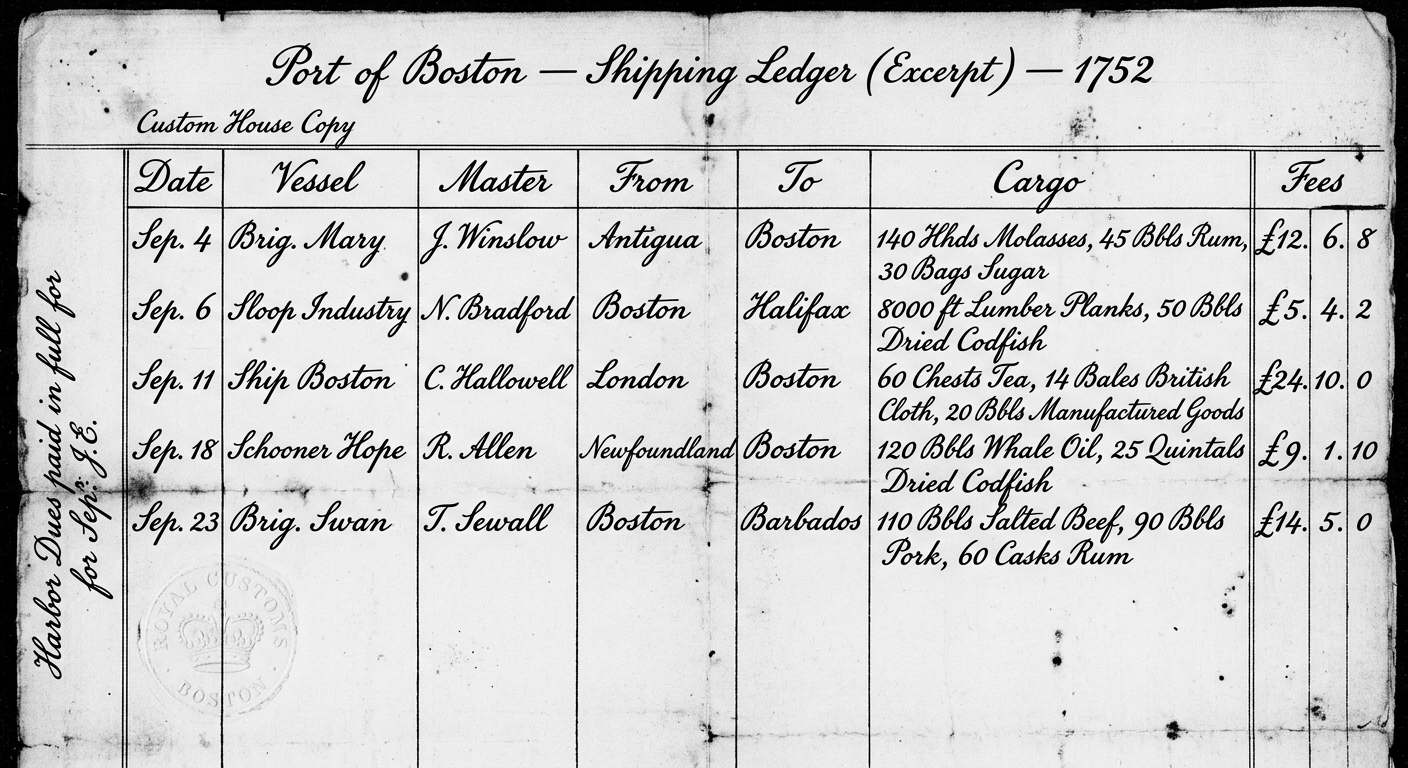 Port of Boston — Shipping Ledger (Excerpt) — 1752
Custom House Copy
Date Vessel Master From To Cargo Fees
Sep. 4 Brig. Mary J. Winslow Antigua Boston 140 Hhds Molasses, 45 Bbls Rum, £12. 6. 8
30 Bags Sugar
Sep. 6 Sloop Industry N. Bradford Boston Halifax 8000 ft Lumber Planks, 50 Bbls £5. 4. 2
Dried Codfish
Sep. 11 Ship Boston C. Hallowell London Boston 60 Chests Tea, 14 Bales British £24. 10. 0
Cloth, 20 Bbls Manufactured Goods
Sep. 18 Schooner Hope R. Allen Newfoundland Boston 120 Bbls Whale Oil, 25 Quintals £9. 1. 10
Dried Codfish
Sep. 23 Brig. Swan T. Sewall Boston Barbados 110 Bbls Salted Beef, 90 Bbls £14. 5. 0
Pork, 60 Casks Rum
Harbor Dues paid in full for
for Sepr. J.E.
ROYAL CUSTOMS
BOSTON